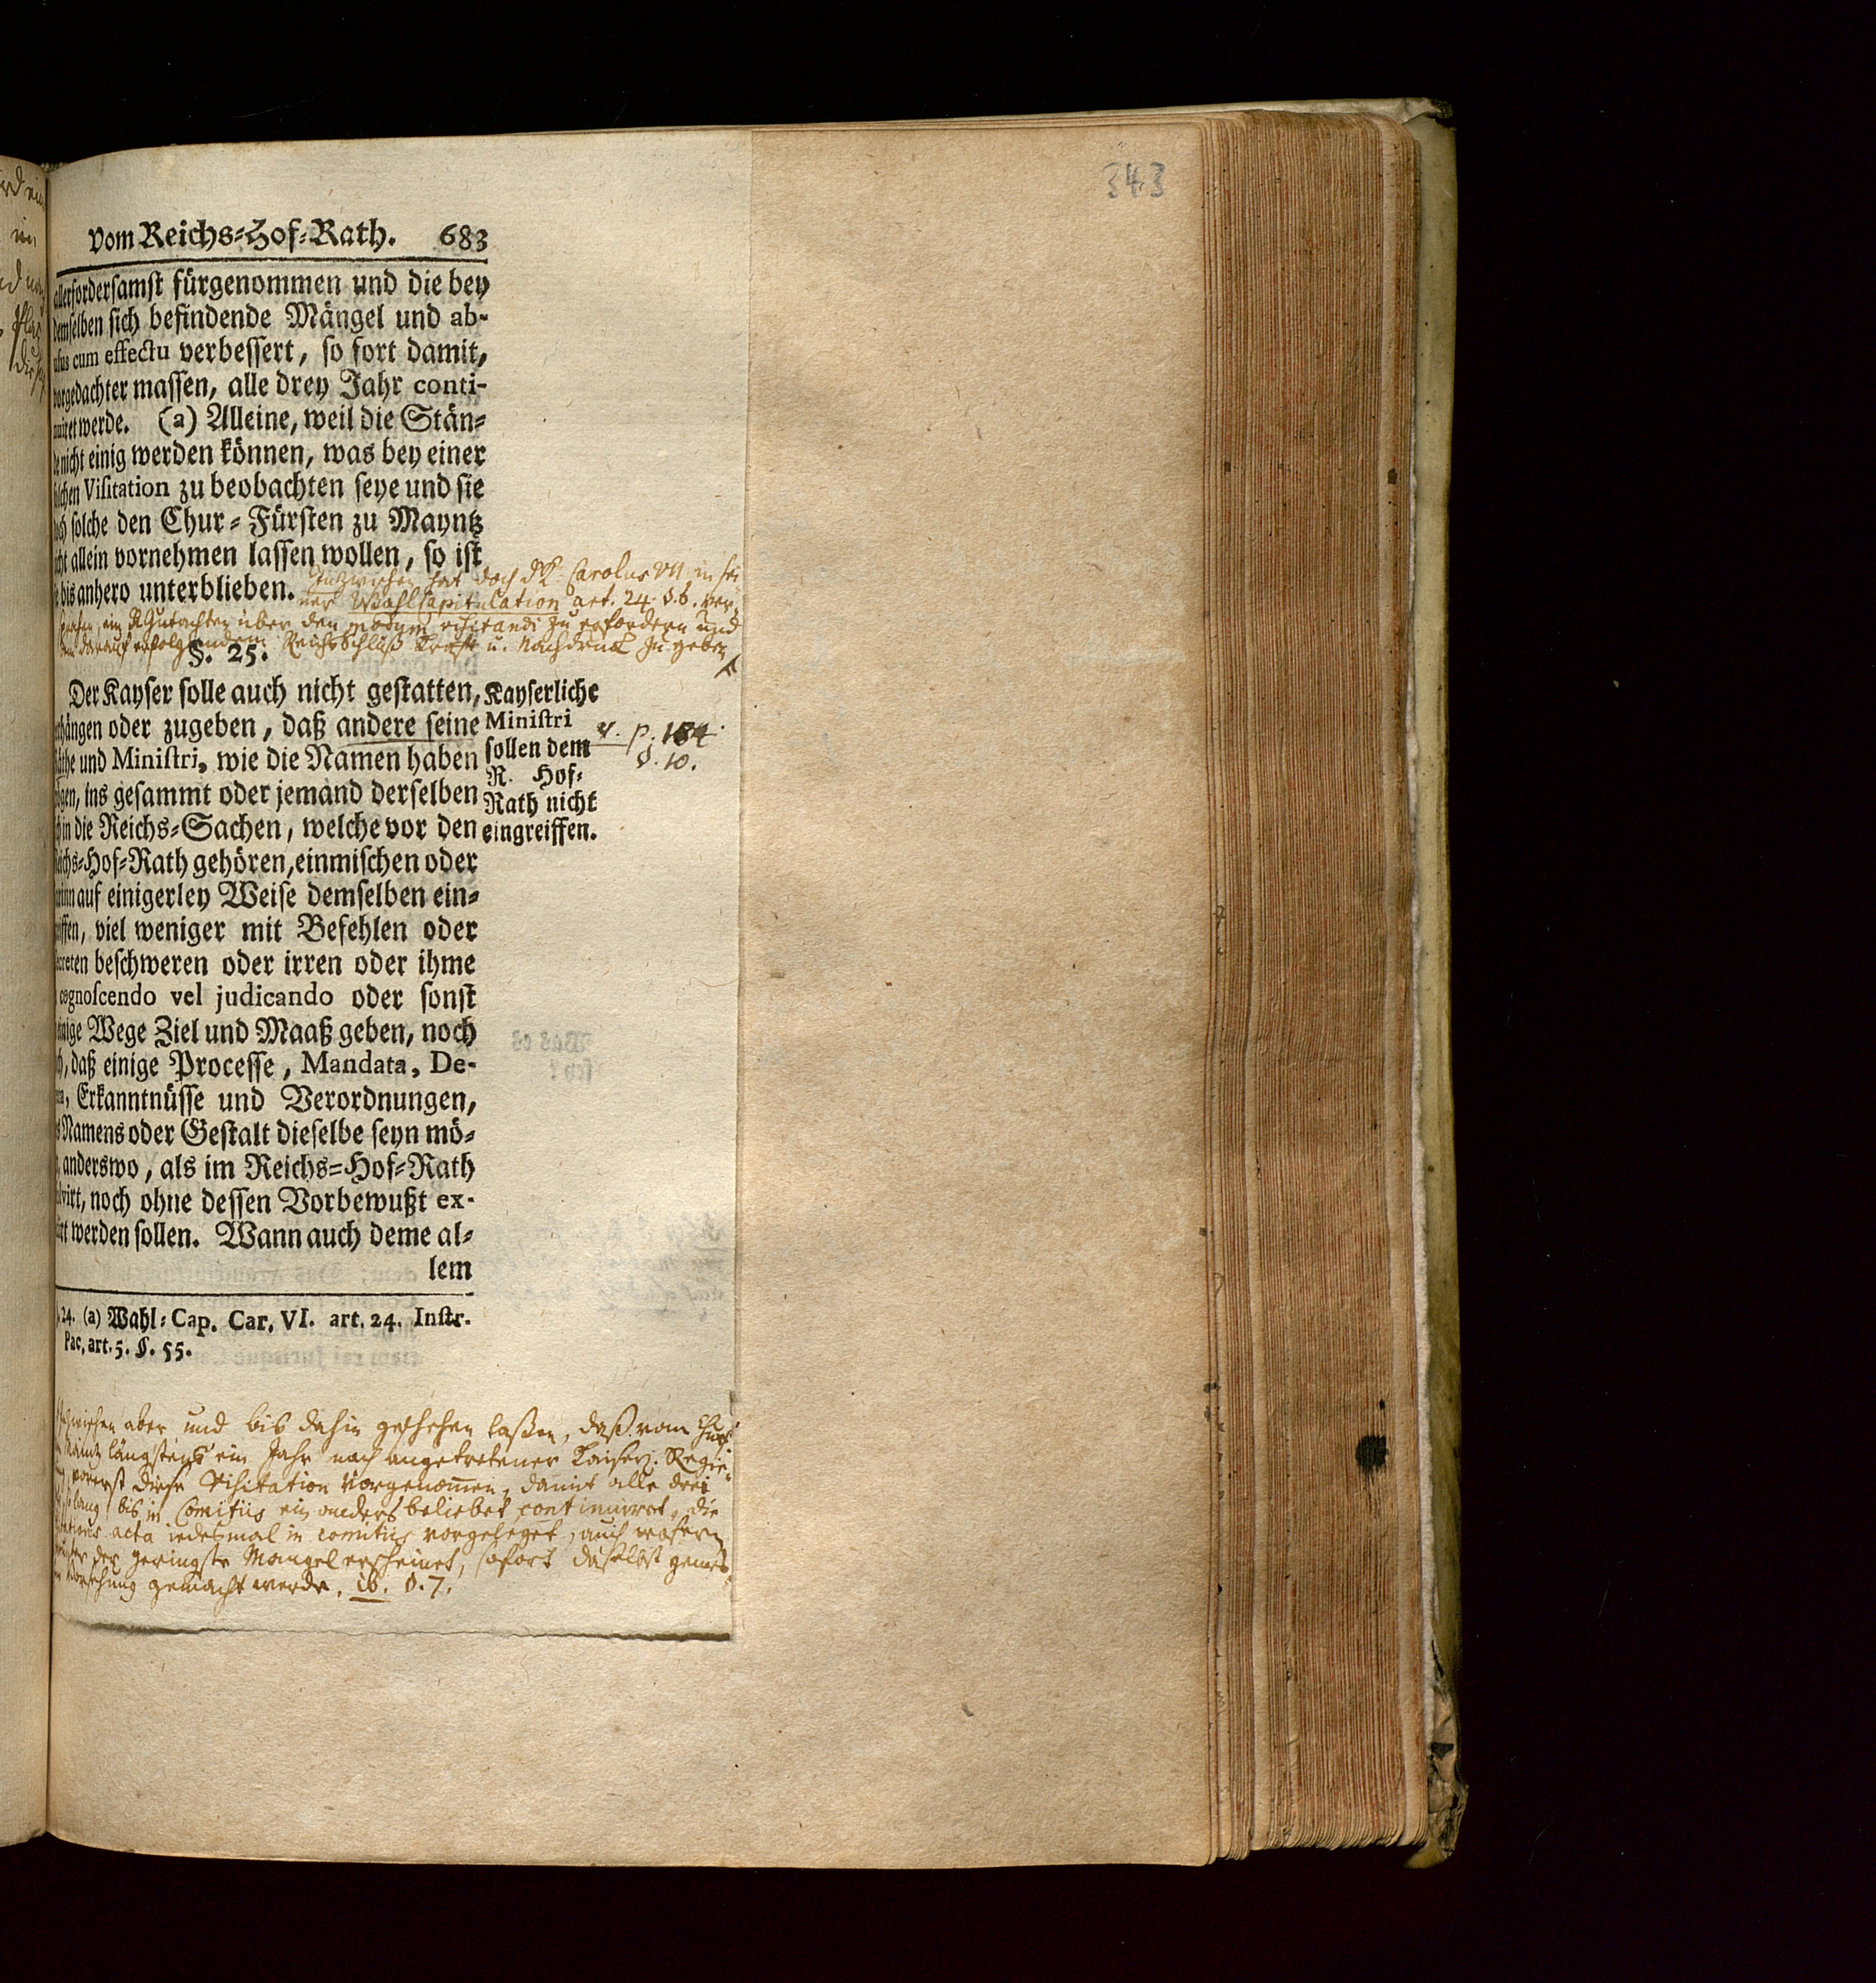 343
vom Reichs-Hof-Rath. 683
allerfordersamst fürgenommen und die bey
demselben sich befindende Mängel und ab-
usus cum effectu verbessert, so fort damit,
vorgedachter massen, alle drey Jahr conti-
nuiret werde. (a) Alleine, weil die Stän-
de nicht einig werden können, was bey einer
solchen Visitation zu beobachten seye und sie
doch solche den Chur-Fürsten zu Mayntz
nicht allein vornehmen lassen wollen, so ist
sie bis anhero unterblieben.
Inzwischen hat doch d K. Carolus VII in sei
ner Wahlcapitulation art. 24. §. 6. ver-
ein RGutachten über den modum visitandi zu erfordern und
darauf erfolgendem Reichsschluß Krafft u. Nachdruck zu geben
§. 25.
Der Kayser solle auch nicht gestatten,
verhängen oder zugeben, daß andere seine
Räthe und Ministri, wie die Namen haben
mögen, ins gesammt oder jemand derselben
sich in die Reichs-Sachen, welche vor den
Reichs-Hof-Rath gehören, einmischen oder
darinn auf einigerley Weise demselben ein-
greiffen, viel weniger mit Befehlen oder
Decreten beschweren oder irren oder ihme
cognoscendo vel judicando oder sonst
einige Wege Ziel und Maaß geben, noch
auch, daß einige Processe, Mandata, De-
creta, Erkanntnüsse und Verordnungen,
Namens oder Gestalt dieselbe seyn mö-
anderswo, als im Reichs-Hof-Rath
resolvirt, noch ohne dessen Vorbewußt ex-
werden sollen. Wann auch deme al-
lem
Kayserliche
Ministri
sollen dem
R. Hof-
Rath nicht
eingreiffen.
v. p. 184.
§. 10.
§. 24. (a) Wahl-Cap. Car. VI. art. 24. Instr.
Pac. art. 5. §. 55.
Inzwischen aber und bis dahin geschehen laßen, daß vom Churf.
Mainz längstens ein Jahr nach angetretener Kaiserl. Regie-
vorerst diese Visitation vorgenommen, damit alle drei
solang bis in Comitiis ein anders beliebet continuiret, die
acta iedesmal in comitiis vorgeleget, auch wofern
der geringste Mangel erscheinet, sofort daselbst gemes-
Vorsehung gemacht werde. ib. §. 7.